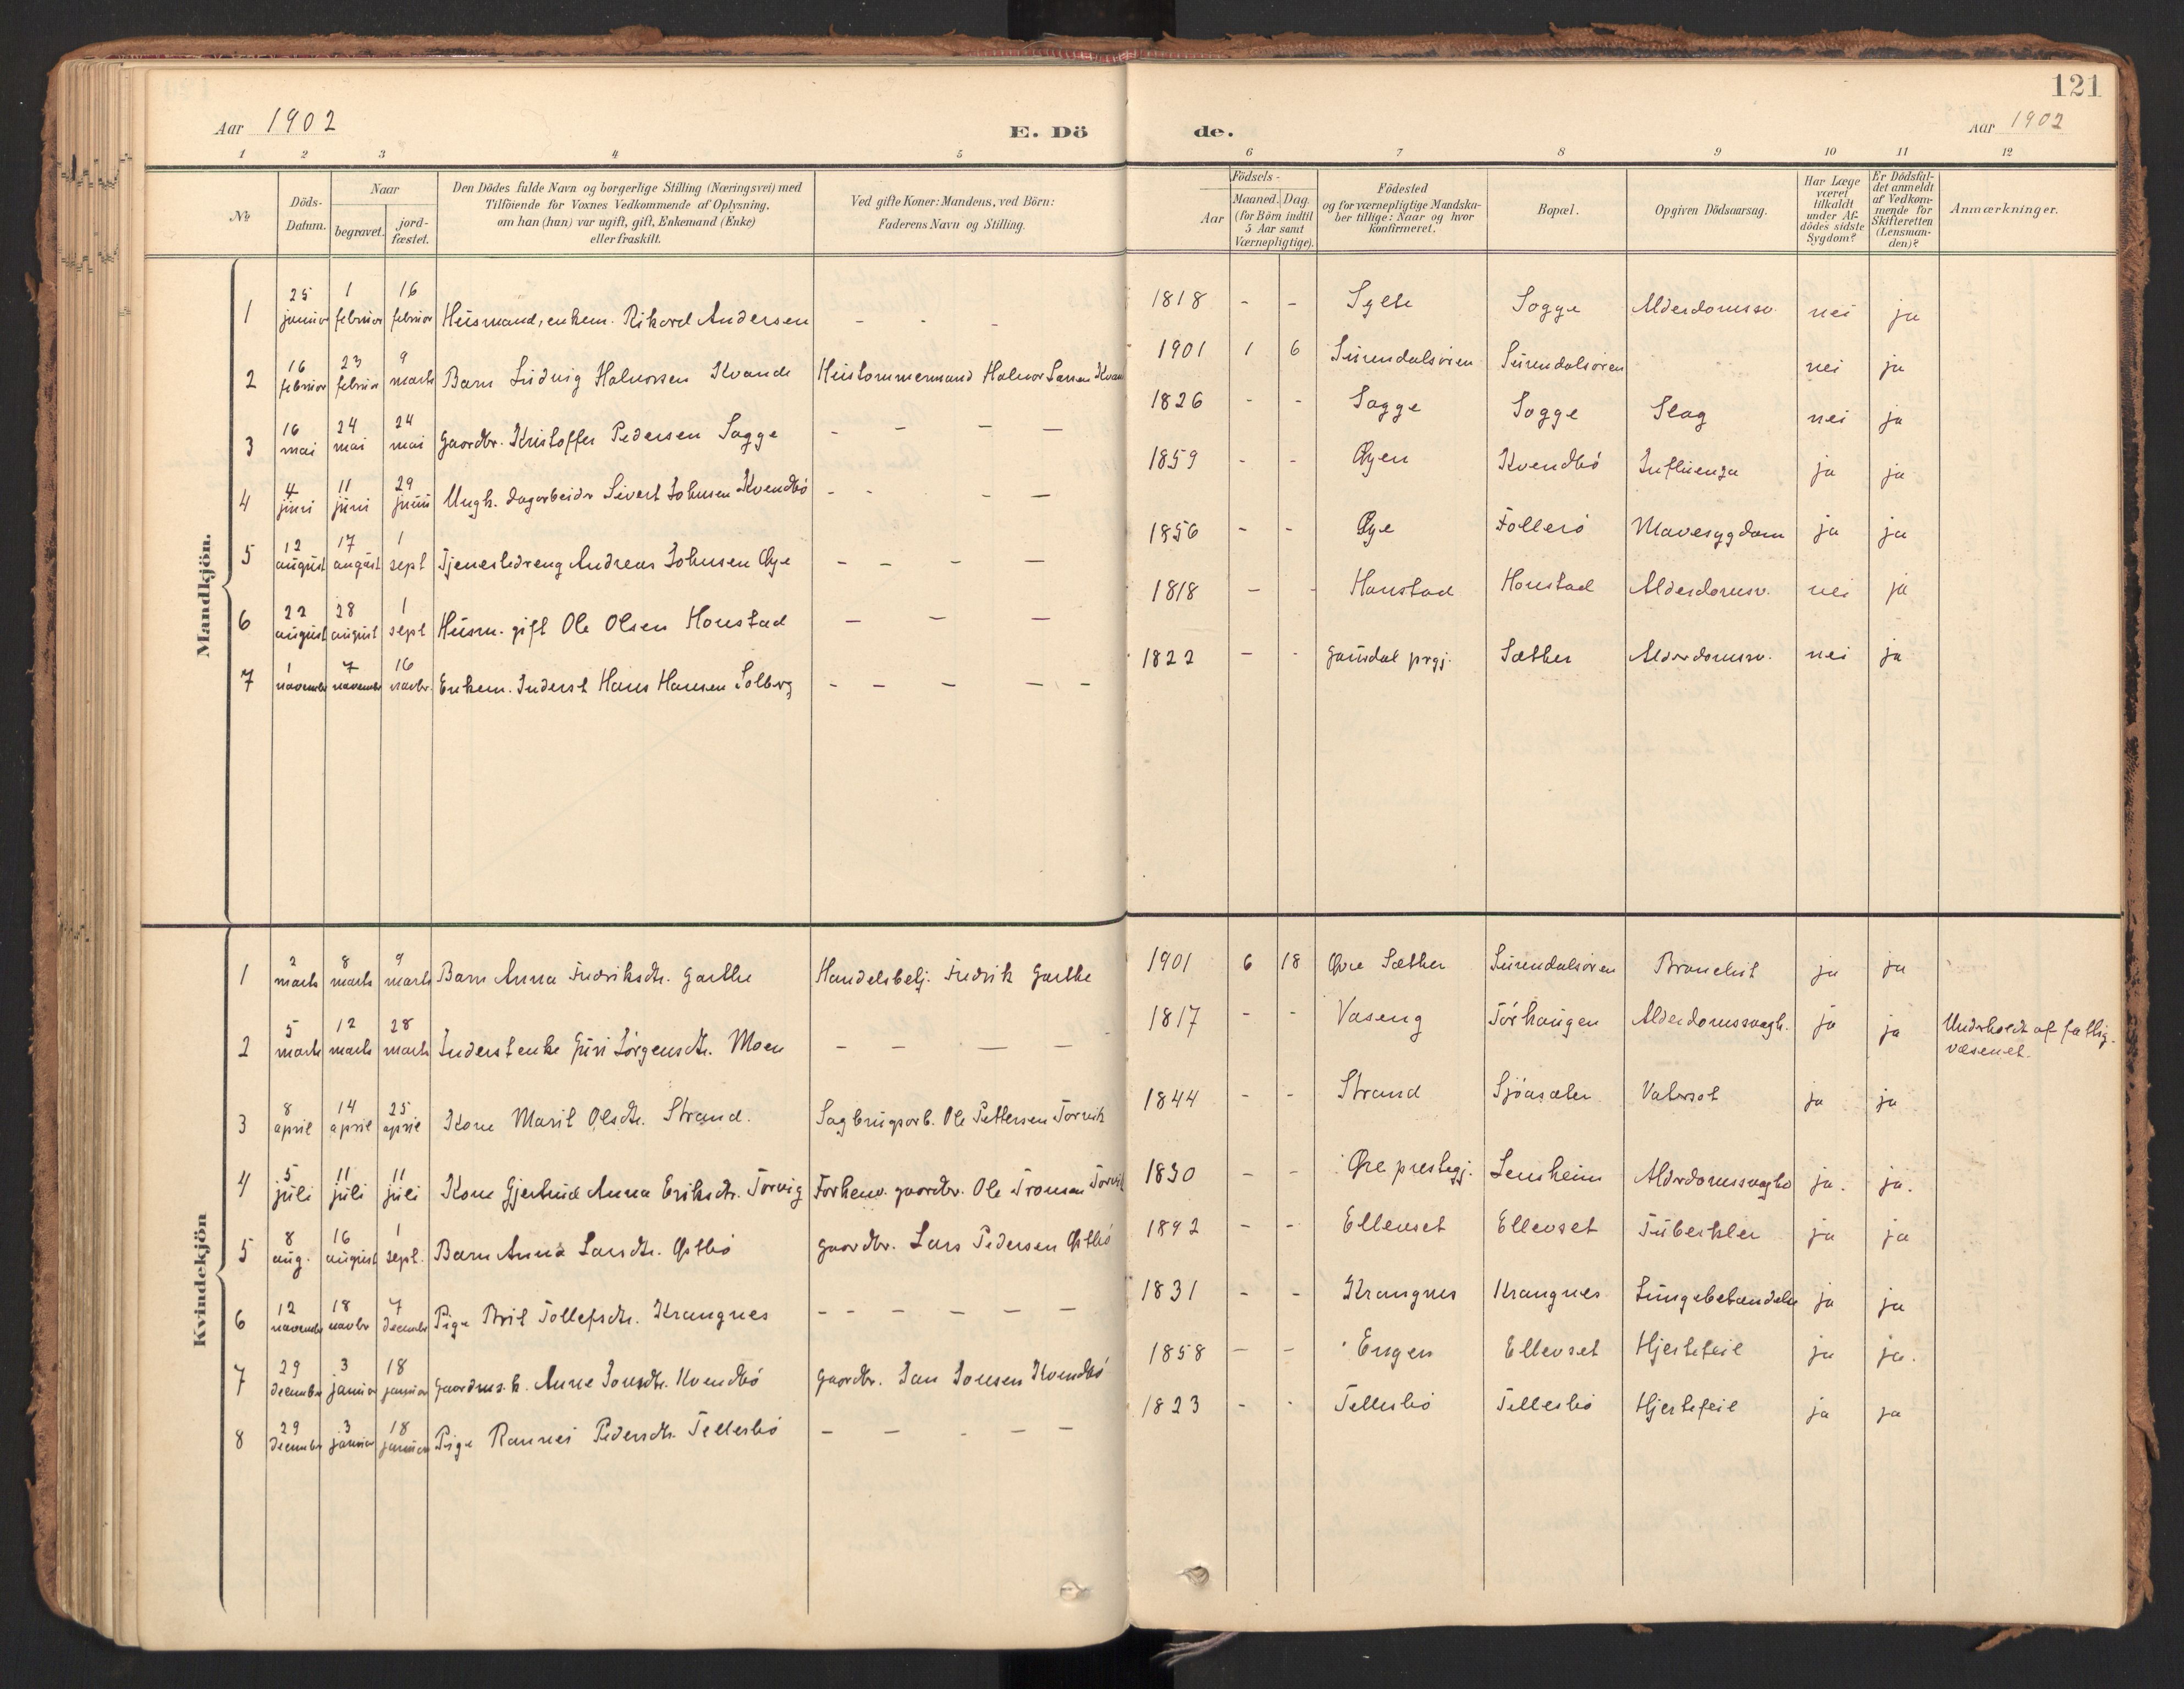 121
Aar 1902 E. Dö de. Aar 1902
1 2 3 4 5 6 7 8 9 10 11 12
No
Döds-Datum.
Naar
begravet.
jord-fæstet.
Den Dödes fulde Navn og borgerlige Stilling (Næringsvei) med
Tilföiende for Voxnes Vedkommende af Oplysning,
om han (hun) var ugift, gift, Enkemand (Enke)
eller fraskilt.
Ved gifte Koner: Mandens, ved Börn:
Faderens Navn og Stilling.
Födsels-
Aar
Maaned. Dag.
(for Börn indtil
5 Aar samt
Værnepligtige).
Födested
og for værnepligtige Mandska-
ber tillige: Naar og hvor
Konfirmeret.
Bopæl.
Opgiven Dödsaarsag.
Har Læge
været
tilkaldt
under Af-
dödes sidste
Sygdom?
Er Dödsfal-
det anmeldt
af Vedkom-
mende for
Skifteretten
(Lensman-
den)?
Anmærkninger.
Mandkjön.
1 25 januar 1 februar 16 februar Husmand, enkem. Rikard Andersen - - - 1818 - - Sylte Sogge Alderdomssv. nei ja
2 16 februar 23 februar 9 marts Barn Ludvig Halvorsen Kvande Hustømmermand Halvor Larsen Kvan 1901 1 6 Surendalsøren Surendalsøren nei ja
3 16 mai 24 mai 24 mai Gaardbr. Kristoffer Pedersen Sogge - - - - 1826 - - Sogge Sogge Slag nei ja
4 4 juni 11 juni 29 juni Ungk. dagarbeider Sivert Johnsen Kvendbø - - - - 1859 - - Øyen Kvendbø Influenza ja ja
5 12 august 17 august 1 sept Tjenestedreng Andreas Johnsen Øye - - - - 1856 - - Øye Follerø Mavesygdom ja ja
6 22 august 28 august 1 sept Husm. gift Ole Olsen Honstad - - - 1818 - - Honstad Honstad Alderdomsv. nei ja
7 1 november 7 november 16 novbr. Enkem. Inderst Hans Hansen Solberg - - - - - 1822 - - Gausdal prgj. Sæther Alderdomssv. nei ja
Kvindekjön
1 2 marts 8 marts 9 marts Barn Anna Fredriksdtr. Garthe Handelsbetj. Fredrik Garthe 1901 6 18 Øvre Sæther Surendalsøren Bronchit ja ja
2 5 marts 12 marts 28 marts Inderstenke Guri Jørgensdtr. Moen - - - - 1817 - - Vaseng Tørhaugen Alderdomssvagh. ja ja Underholdt af fattig-
væsenet.
3 8 april 14 april 25 april Kone Marit Olsdtr. Strand. Sagbrugsarb. Ole Pettersen Torvik 1844 - - Strand Sjøasæter Vatersot ja ja
4 5 juli 11 juli 11 juli Kone Gjertrud Anna Eriksdtr. Torvig Forhenv. gaardbr. Ole Tronsen Torvik 1830 - - Øre prestegj. Lensheim Alderdomssvaghed ja. ja.
5 8 aug. 16 august 1 sept. Barn Anna Larsdtr. Østbø Gaardbr. Lars Pedersen Østbø 1892 - - Ellevset Ellevset Tuberkler ja ja
6 12 november 18 novbr 7 december Pige Brit Tollefsdtr. Krangnes - - - - - - 1831 - - Krangnes Krangnes Lungebetændelse ja ja
7 29 december 3 januar 18 januar Gaardms. k. Anne Jonsdtr. Kvendbø Gaardbr. Jon Jonsen Kvendbø 1858 - - Engen Ellevset Hjertefeil ja ja.
8 29 december 3 januar 18 januar Pige Rannei Pedersdtr. Tellesbø - - - - - 1823 - - Tellesbø Tellesbø Hjertefeil ja ja